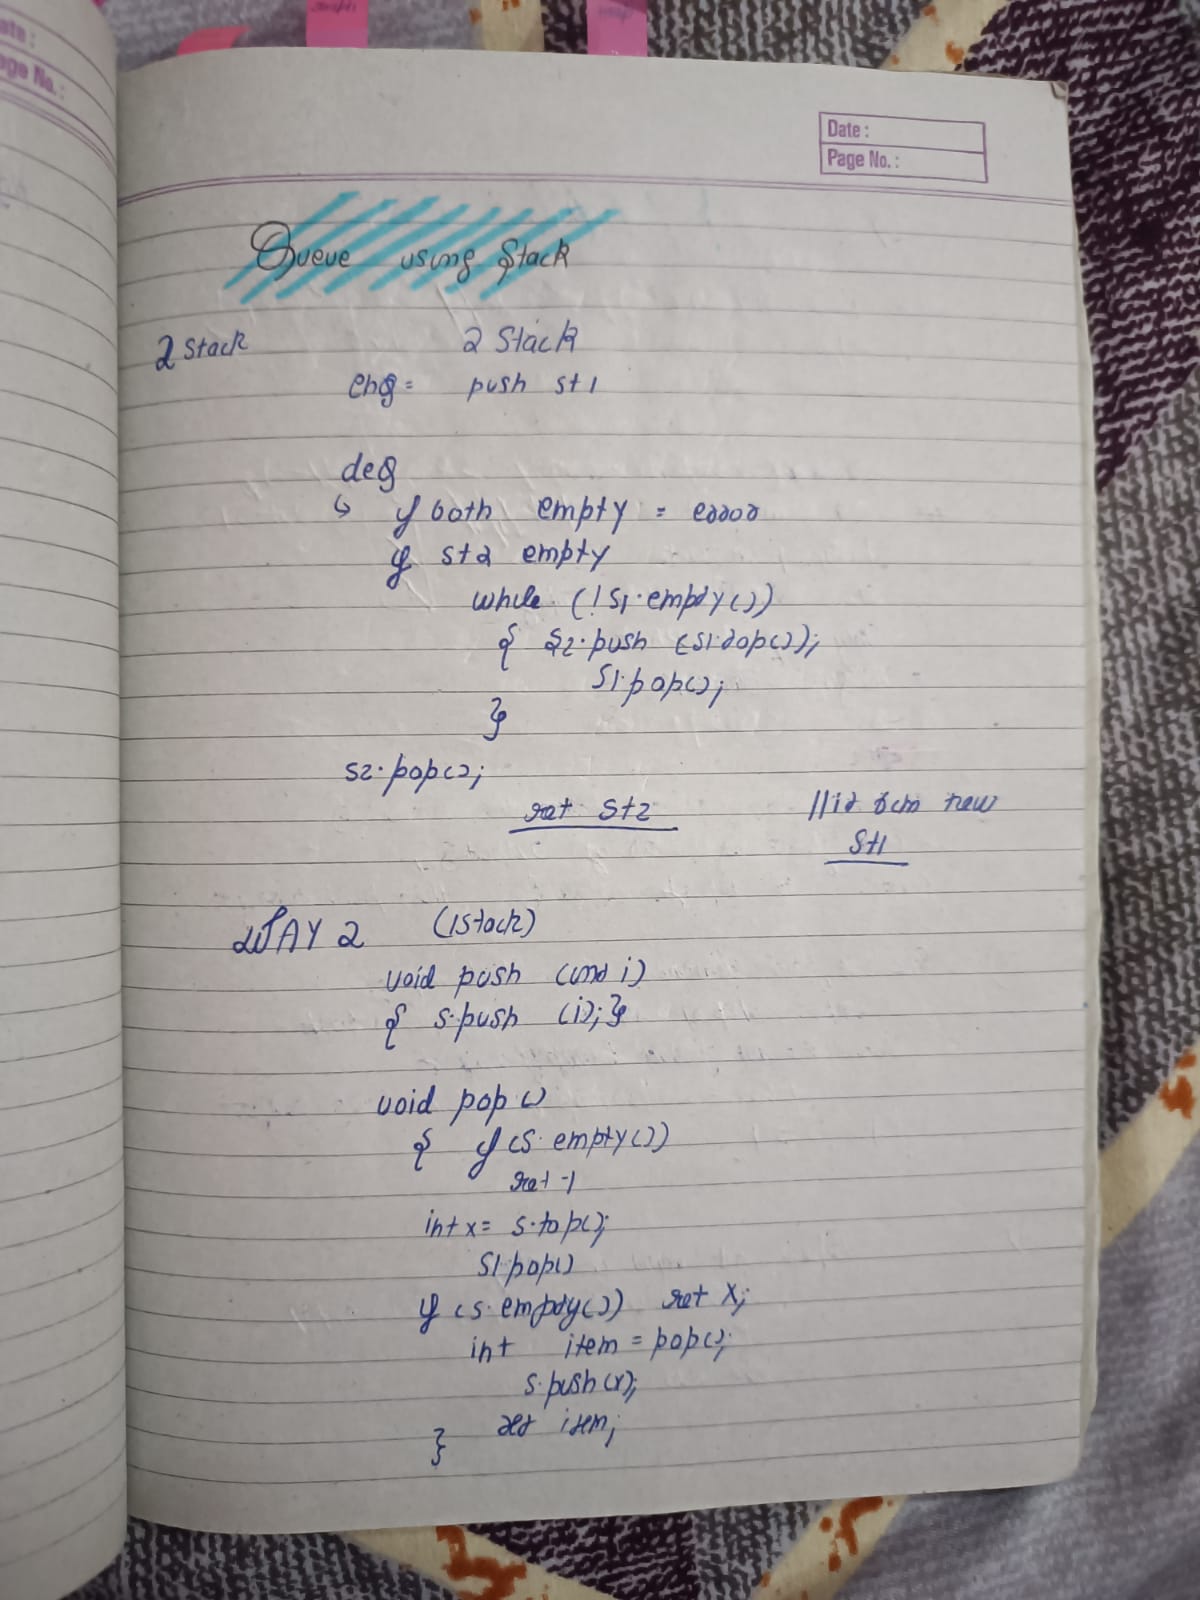 Date :
Page No. :
Queue using Stack
2 Stack
2 Stack
enq = push st1
deq
↳ if both empty = error
if st2 empty
while (!s1.empty())
{ s2.push (s1.top());
s1.pop();
}
s2.pop();
ret st2
// it bcm new
st1
WAY 2 (1 stack)
void push (int i)
{ s.push (i); }
void pop ()
{ if (s.empty())
ret -1
int x = s.top();
s1.pop()
if (s.empty()) ret x;
int item = pop();
s.push(x);
ret item;
}